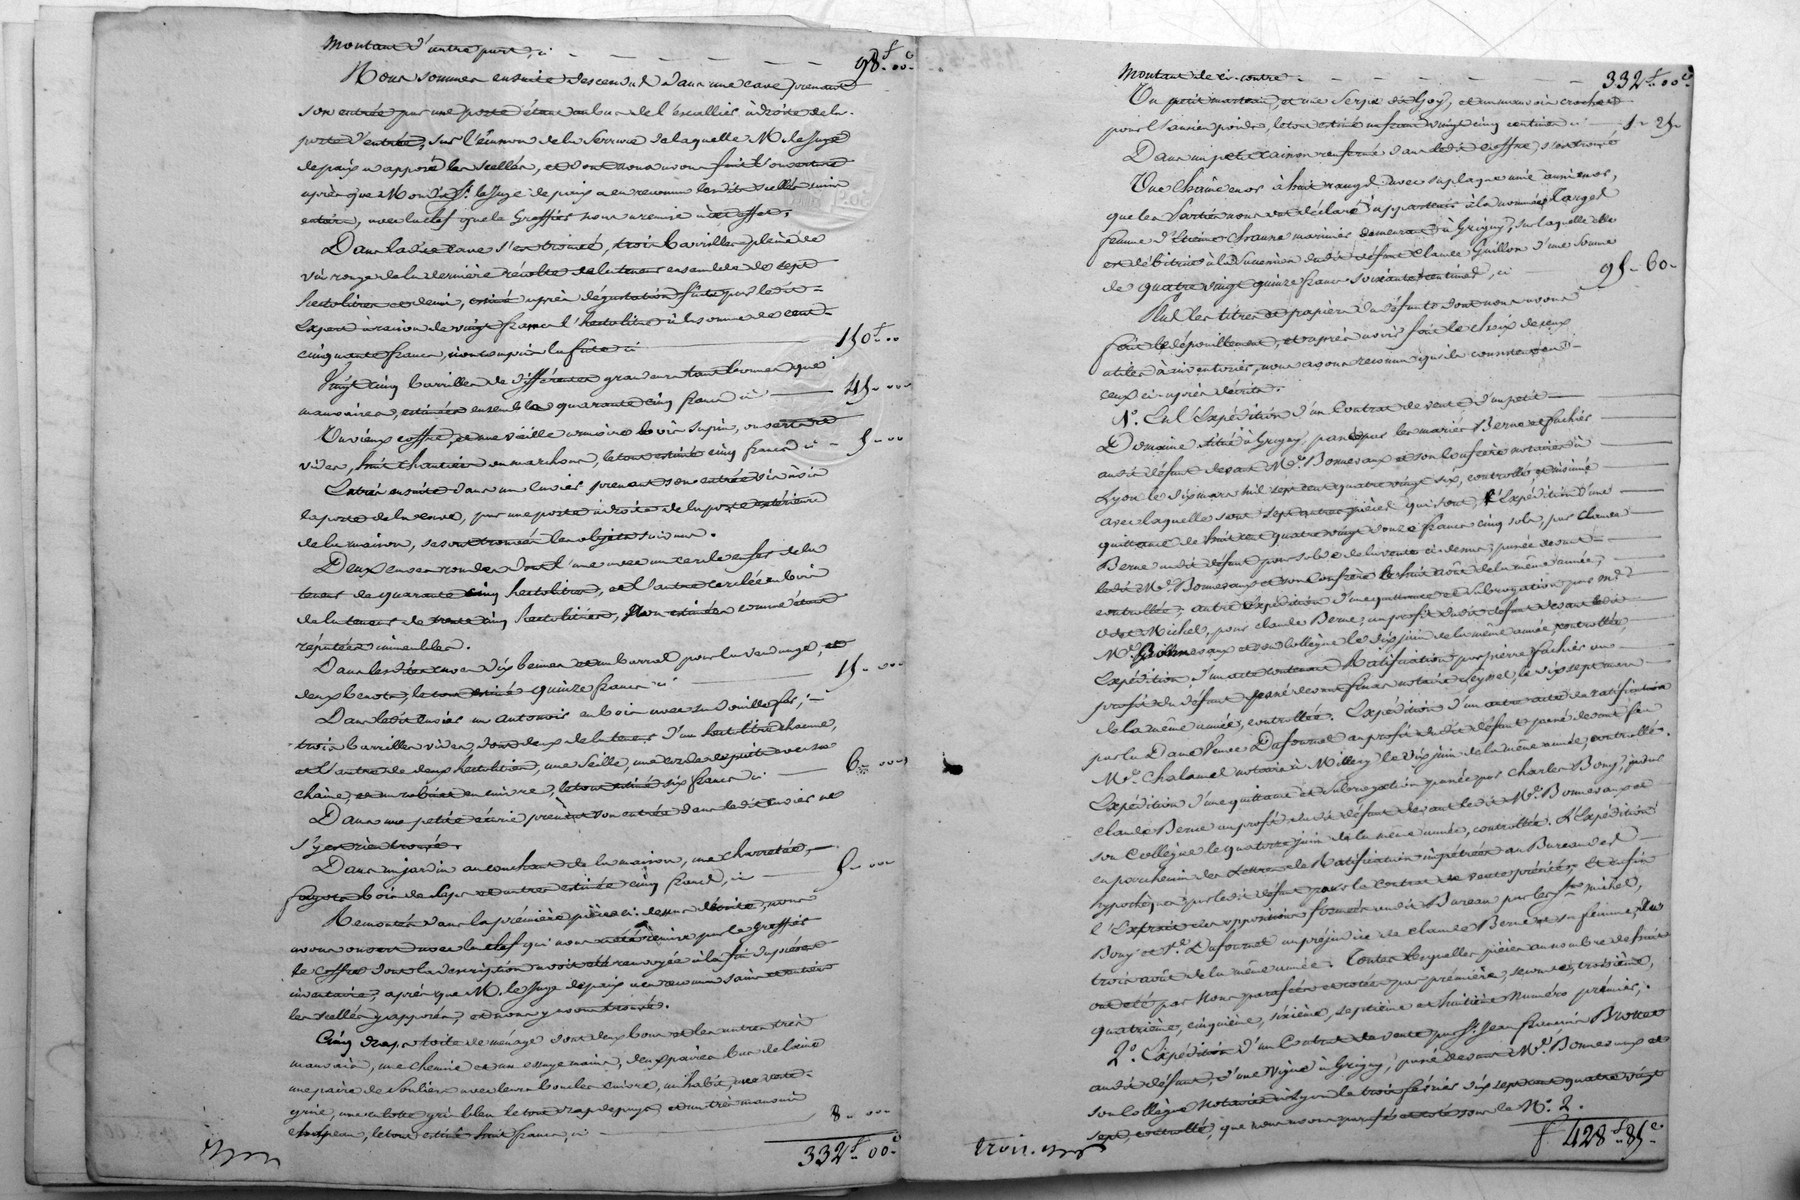 Montant d'autre part, ci - - - - - - 98.f 00.c
Nous sommes ensuite descendus dans une cave prenant
son entrée par une porte étant au bas de l'escallier à droite de la
porte d'entrée, sur l'écusson de la serrure de laquelle M. le Juge
de paix a apposé les scellés, et dont nous avons fait l'ouverture
après que Mondit Sr. le Juge de paix a eu reconnu lesdits scellés sains
entiers, avec la clef que le Greffier nous a remise à cet effet.
Dans ladite cave s'est trouvé, trois barrilles pleines de
vin rouge de la dernière récolte de la teneur ensemble de sept
hectolitres et demi, estimé après dégustation faite par ledit
Expert à raison de vingt francs l'hectolitre à la somme de cent
cinquante francs, non compris la fûte ci 150.f 00
Vingt cinq barrilles de différentes grandeurs tant bonnes que
mauvaises, estimées ensemble quarante cinq francs ci 45. 00
Un vieux coffre, et une vieille armoire bois sapin, ouverte et
vides, huit chantiers ou marchons, le tout estimé cinq francs ci 5. 00
Entrés ensuite dans un cuvier prenant son entrée vis à vis
la porte de la cave, par une porte à droite de la porte extérieure
de la maison, se sont trouvés les objets suivans.
Deux cuves rondes dont l'une avec un cercle en fer de la
teneur de quarante cinq hectolitres, et l'autre cerclée en bois
de la teneur de trente cinq hectolitres, non estimées comme étant
réputées immeubles.
Dans lesdites cuves dix bennes et un barral pour la vendange, et
deux benots, le tout estimé quinze francs ci 15. 00
Dans ledit cuvier un entonnoir en bois avec sa douille fer,
trois barrilles vides, dont deux de la teneur d'un hectolitre chacune,
et l'autre de deux hectolitres, une seille, une corde de puits avec sa
chaîne, et un robinet en cuivre, le tout estimé six francs ci 6. 00
Dans une petite écurie prenant son entrée dans ledit cuvier ne
s'y est rien trouvé.
Dans un jardin au couchant de la maison, une charretée,
fagots bois de saye et autres estimée cinq francs, ci 5. 00
Remontés dans la première pièce ci-dessus décrite, nous
avons ouvert avec la clef qui nous a été remise par le Greffier
le coffre dont la description avoit été renvoyée à la fin du présent
inventaire, après que M. le Juge de paix a eu reconnu sains et entiers
les scellés y apposés, et nous y avons trouvé.
Cinq draps toile de ménage dont deux bons et les autres très
mauvais, une chemise et un essuye mains, deux paires bas de laine
une paire de souliers avec leurs boucles cuivre, un habit, une veste
grise, une culotte gris bleu le tout drap de pays et un très mauvais
chapeau, le tout estimé huit francs, ci 8. 00
332.f 00.c
Montant de ci-contre - - - - - - 332.f 00.c
Un petit marteau, et une serpe dit Goy, et un mauvais crochet
pour l'ancien poids, le tout estimé un franc vingt cinq centimes ci 1. 25
Dans un petit caisson renfermé dans ledit coffre, s'est trouvé
Une chaîne en or à huit rangs avec sa plaque unie aussi en or,
que les Parties nous ont déclaré appartenir à la nommée
femme d'Etienne marinier demeurant à Grigny, sur laquelle elle
est débitrice à la succession dudit défunt Claude Guillon d'une somme
de quatre vingt quinze francs soixante centimes, ci 95. 60
Plus les titres et papiers du défunt dont nous avons
fait le dépouillement, et après avoir fait le choix de ceux
utiles à inventorier, nous avons reconnu qu'ils consistent en
ceux ci-après décrits.
1°. En l'Expédition d'un Contrat de vente d'un petit
Domaine situé à Grigny, passé par les mariés Berne et
audit défunt devant Me. Bonnevaux et son Confrère notaires à
Lyon le dix mars mil sept cent quatre vingt six, controllé et insinué
avec laquelle sont sept autres pièces qui sont, l'Expédition d'une
quittance de huit cent quatre vingt douze francs cinq sols, par Claude
Berne audit défunt pour solde de la vente ci-dessus, passée devant
ledit Me. Bonnevaux et son Confrère le huit août de la même année,
controllée; autre Expédition d'une quittance et subrogation par
Michel, pour Claude Berne, au profit dudit défunt devant ledit
Me. Bonnevaux et son Collègue le dix juin de la même année, controllée,
Expédition d'un acte contenant Ratification par pierre au
profit du défunt passé devant notaire le dix sept mars
de la même année, controllée. Expédition d'un autre acte de ratification
par la Dame Veuve Dafournel au profit dudit défunt passé devant feu
Me. Chalamel notaire à Millery le dix juin de la même année, controllé.
Expédition d'une quittance et subrogation passée par Charles Bony, pour
Claude Berne au profit dudit défunt devant ledit Me. Bonnevaux et
son Collègue le quatorze juin de la même année, controllée. L'Expédition
en parchemin des Lettres de Ratification impétrées au Bureau des
hypothèques par ledit défunt pour le Contrat de vente précité; Et enfin
l'Extrait des oppositions formées audit Bureau par les Srs. Michel,
Bony et Ve. Dafournel au préjudice de Claude Berne et sa femme, du
trois août de la même année. Toutes lesquelles pièces au nombre de huit
ont été par Nous paraphées et cotées par première, seconde, troisième,
quatrième, cinquième, sixième, septième et huitième Numéro premier.
2°. Expédition d'un Contrat de vente par Sr. Jean François
audit défunt, d'une vigne à Grigny, passé devant Me. Bonnevaux et
son Collègue Notaires à Lyon le trois février dix sept cent quatre vingt
sept, controllé, que nous avons paraphé et coté sous le N°. 2.
f 428.f 85.c
trois.